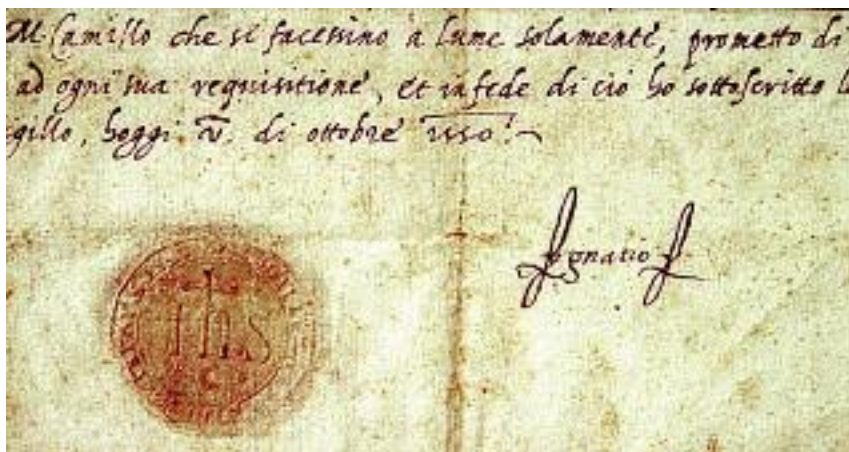 M. Camillo che si facessino a lume solamente, prometto di
ad ogni sua requisitione, et in fede di cio ho sottoscritto
sigillo, hoggi. v. di ottobre 1550.
Ignatio
ihs